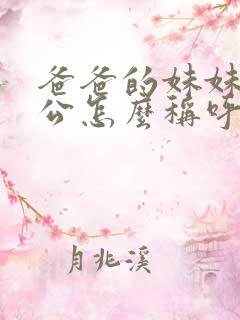 爸爸的妹妹
公怎麼稱呼
月兆溪